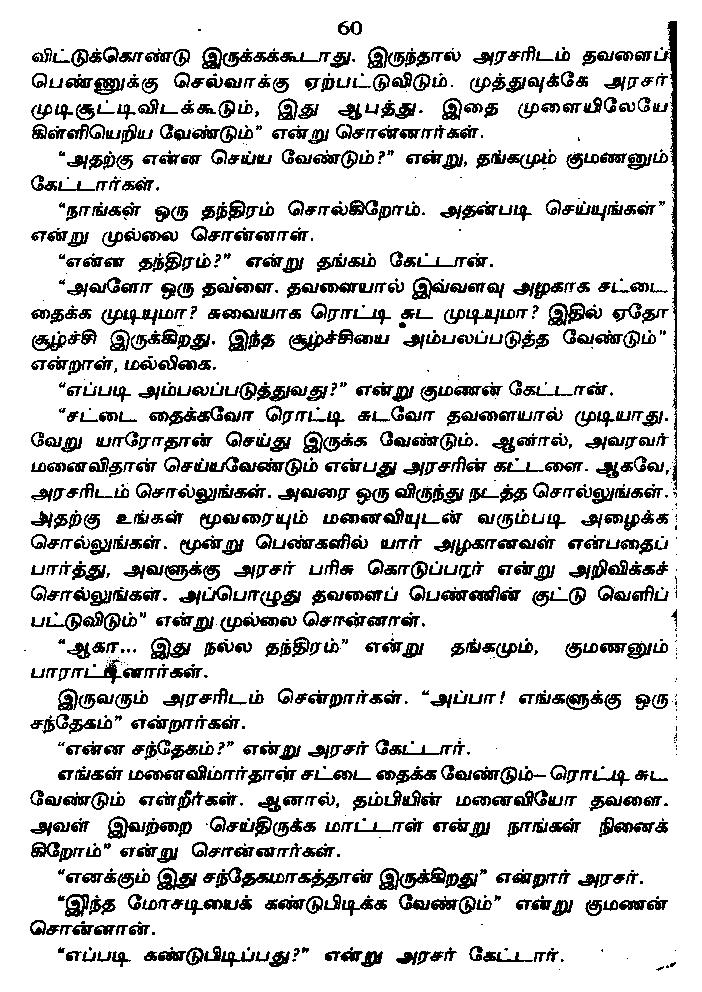 60
விட்டுக்கொண்டு இருக்கக்கூடாது. இருந்தால் அரசரிடம் தவளைப்
பெண்ணுக்கு செல்வாக்கு ஏற்பட்டுவிடும். முத்துவுக்கே அரசர்
முடிசூட்டிவிடக்கூடும், இது ஆபத்து. இதை முளையிலேயே
கிள்ளியெறிய வேண்டும்” என்று சொன்னார்கள்.
“அதற்கு என்ன செய்ய வேண்டும்?” என்று, தங்கமும் குமணனும்
கேட்டார்கள்.
“நாங்கள் ஒரு தந்திரம் சொல்கிறோம். அதன்படி செய்யுங்கள்”
என்று முல்லை சொன்னாள்.
“என்ன தந்திரம்?” என்று தங்கம் கேட்டான்.
“அவளோ ஒரு தவளை. தவளையால் இவ்வளவு அழகாக சட்டை
தைக்க முடியுமா? சுவையாக ரொட்டி சுட முடியுமா? இதில் ஏதோ
சூழ்ச்சி இருக்கிறது. இந்த சூழ்ச்சியை அம்பலப்படுத்த வேண்டும்”
என்றாள், மல்லிகை.
“எப்படி அம்பலப்படுத்துவது?” என்று குமணன் கேட்டான்.
“சட்டை தைக்கவோ ரொட்டி சுடவோ தவளையால் முடியாது.
வேறு யாரோதான் செய்து இருக்க வேண்டும். ஆனால், அவரவர்
மனைவிதான் செய்யவேண்டும் என்பது அரசரின் கட்டளை. ஆகவே,
அரசரிடம் சொல்லுங்கள். அவரை ஒரு விருந்து நடத்த சொல்லுங்கள்.
அதற்கு உங்கள் மூவரையும் மனைவியுடன் வரும்படி அழைக்க
சொல்லுங்கள். மூன்று பெண்களில் யார் அழகானவள் என்பதைப்
பார்த்து, அவளுக்கு அரசர் பரிசு கொடுப்பார் என்று அறிவிக்கச்
சொல்லுங்கள். அப்பொழுது தவளைப் பெண்ணின் குட்டு வெளிப்
பட்டுவிடும்” என்று முல்லை சொன்னாள்.
“ஆகா... இது நல்ல தந்திரம்” என்று தங்கமும், குமணனும்
பாராட்டினார்கள்.
இருவரும் அரசரிடம் சென்றார்கள். “அப்பா! எங்களுக்கு ஒரு
சந்தேகம்” என்றார்கள்.
“என்ன சந்தேகம்?” என்று அரசர் கேட்டார்.
எங்கள் மனைவிமார்தான் சட்டை தைக்க வேண்டும்—ரொட்டி சுட
வேண்டும் என்றீர்கள். ஆனால், தம்பியின் மனைவியோ தவளை.
அவள் இவற்றை செய்திருக்க மாட்டாள் என்று நாங்கள் நினைக்
கிறோம்” என்று சொன்னார்கள்.
“எனக்கும் இது சந்தேகமாகத்தான் இருக்கிறது” என்றார் அரசர்.
“இந்த மோசடியைக் கண்டுபிடிக்க வேண்டும்” என்று குமணன்
சொன்னான்.
“எப்படி கண்டுபிடிப்பது?” என்று அரசர் கேட்டார்.